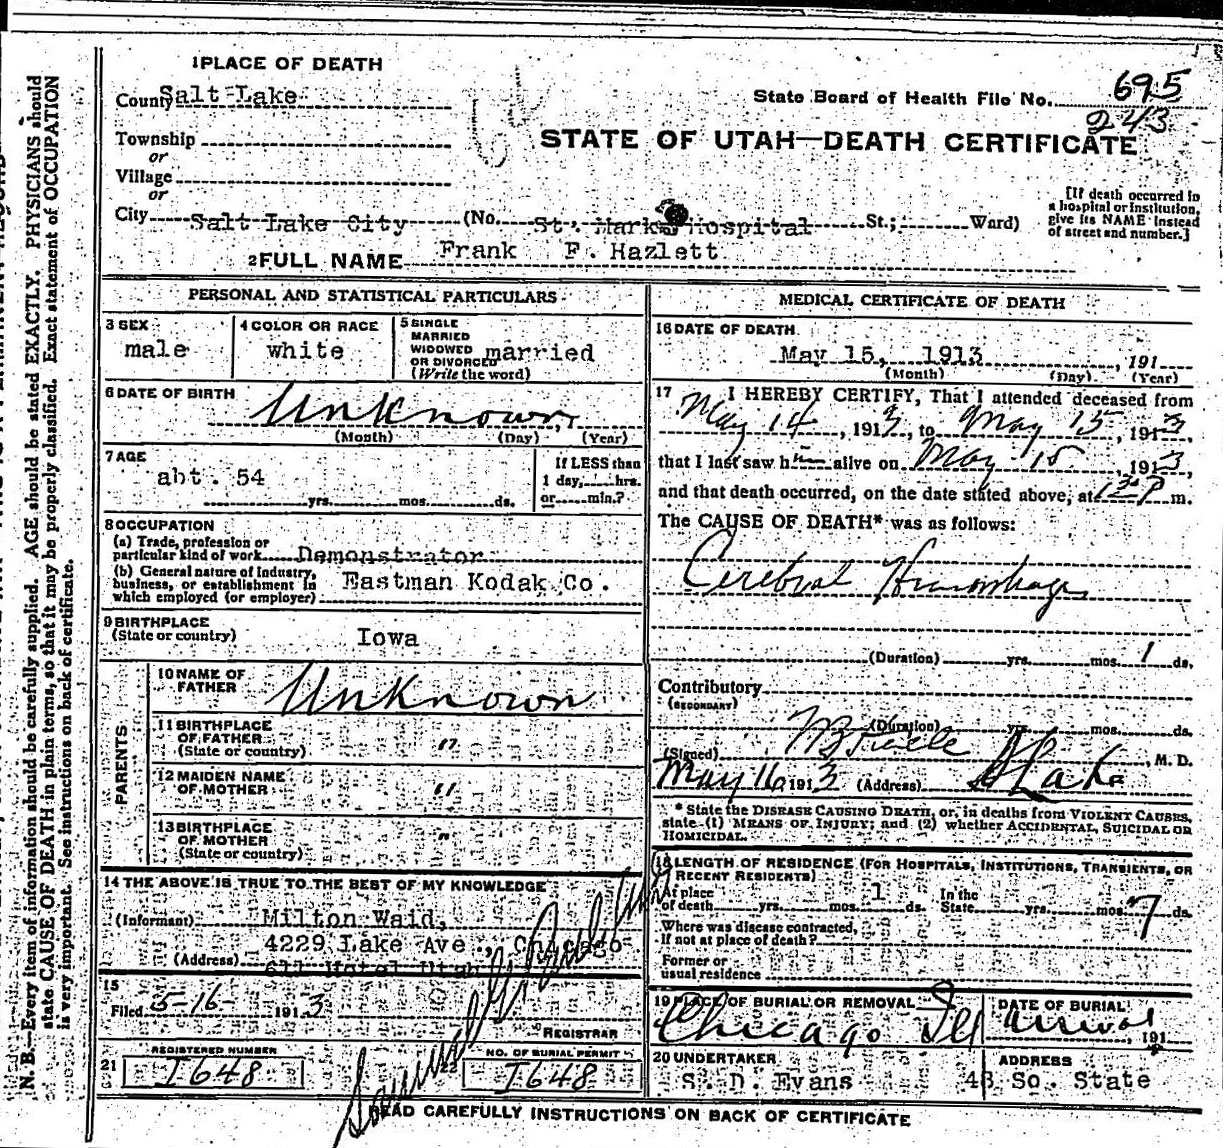 1 PLACE OF DEATH
County Salt Lake
State Board of Health File No. 695
243
Township
or
STATE OF UTAH—DEATH CERTIFICATE
Village
or
City Salt Lake City (No. St. Marks Hospital St.; Ward)
[If death occurred in
a hospital or institution,
give its NAME instead
of street and number.]
2 FULL NAME Frank F. Hazlett
PERSONAL AND STATISTICAL PARTICULARS
3 SEX
male
4 COLOR OR RACE
white
5 SINGLE
MARRIED
WIDOWED
OR DIVORCED married
(Write the word)
6 DATE OF BIRTH
Unknown
(Month) (Day) (Year)
7 AGE
abt. 54
yrs. mos. ds.
If LESS than
1 day, hrs.
or min.?
8 OCCUPATION
(a) Trade, profession or
particular kind of work Demonstrator
(b) General nature of industry,
business, or establishment in
which employed (or employer) Eastman Kodak Co.
9 BIRTHPLACE
(State or country) Iowa
PARENTS
10 NAME OF
FATHER Unknown
11 BIRTHPLACE
OF FATHER
(State or country) "
12 MAIDEN NAME
OF MOTHER "
13 BIRTHPLACE
OF MOTHER
(State or country) "
14 THE ABOVE IS TRUE TO THE BEST OF MY KNOWLEDGE
(Informant) Milton Waid,
4229 Lake Ave., Chicago
(Address) 611 Hotel Utah
15
Filed 5-16- 1913
REGISTRAR
21 REGISTERED NUMBER
I648
22 NO. OF BURIAL PERMIT
I648
MEDICAL CERTIFICATE OF DEATH
16 DATE OF DEATH
May 15, 1913, 191
(Month) (Day) (Year)
17 I HEREBY CERTIFY, That I attended deceased from
May 14, 1913, to May 15, 1913,
that I last saw him alive on May 15, 1913,
and that death occurred, on the date stated above, at 12 30 P m.
The CAUSE OF DEATH* was as follows:
Cerebral Hemorrhage
(Duration) yrs. mos. 1 ds.
Contributory
(SECONDARY)
(Duration) yrs. mos. ds.
(Signed) M. D.
May 16 1913 (Address) S Lake
* State the DISEASE CAUSING DEATH, or, in deaths from VIOLENT CAUSES,
state (1) MEANS OF INJURY; and (2) whether ACCIDENTAL, SUICIDAL OR
HOMICIDAL.
18 LENGTH OF RESIDENCE (FOR HOSPITALS, INSTITUTIONS, TRANSIENTS, OR
RECENT RESIDENTS)
At place
of death yrs. mos. 1 ds.
In the
State yrs. mos. 7 ds.
Where was disease contracted,
If not at place of death?
Former or
usual residence
19 PLACE OF BURIAL OR REMOVAL
Chicago Ill
DATE OF BURIAL
Arrival, 191
20 UNDERTAKER
S. D. Evans
ADDRESS
48 So. State
READ CAREFULLY INSTRUCTIONS ON BACK OF CERTIFICATE
N. B.—Every item of information should be carefully supplied. AGE should be stated EXACTLY. PHYSICIANS should
state CAUSE OF DEATH in plain terms, so that it may be properly classified. Exact statement of OCCUPATION
is very important. See instructions on back of certificate.